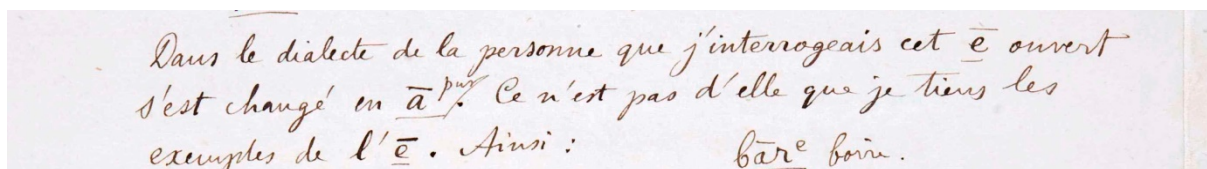 Dans le dialecte de la personne que j'interrogeais cet ē ouvert
s'est changé en ā pur. Ce n'est pas d'elle que je tiens les
exemples de l'ē. Ainsi : bārᵉ boire.